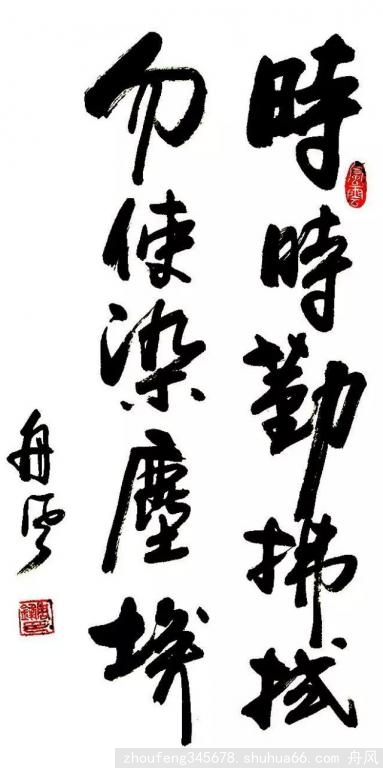 時時勤拂拭
勿使染塵埃
舟風
zhoufeng345678.shuhua66.com 舟风